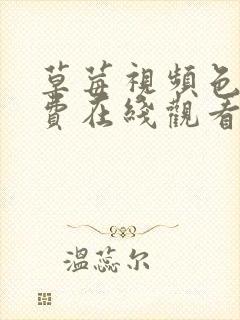 草莓視頻色
費在綫觀看
溫蕊尔